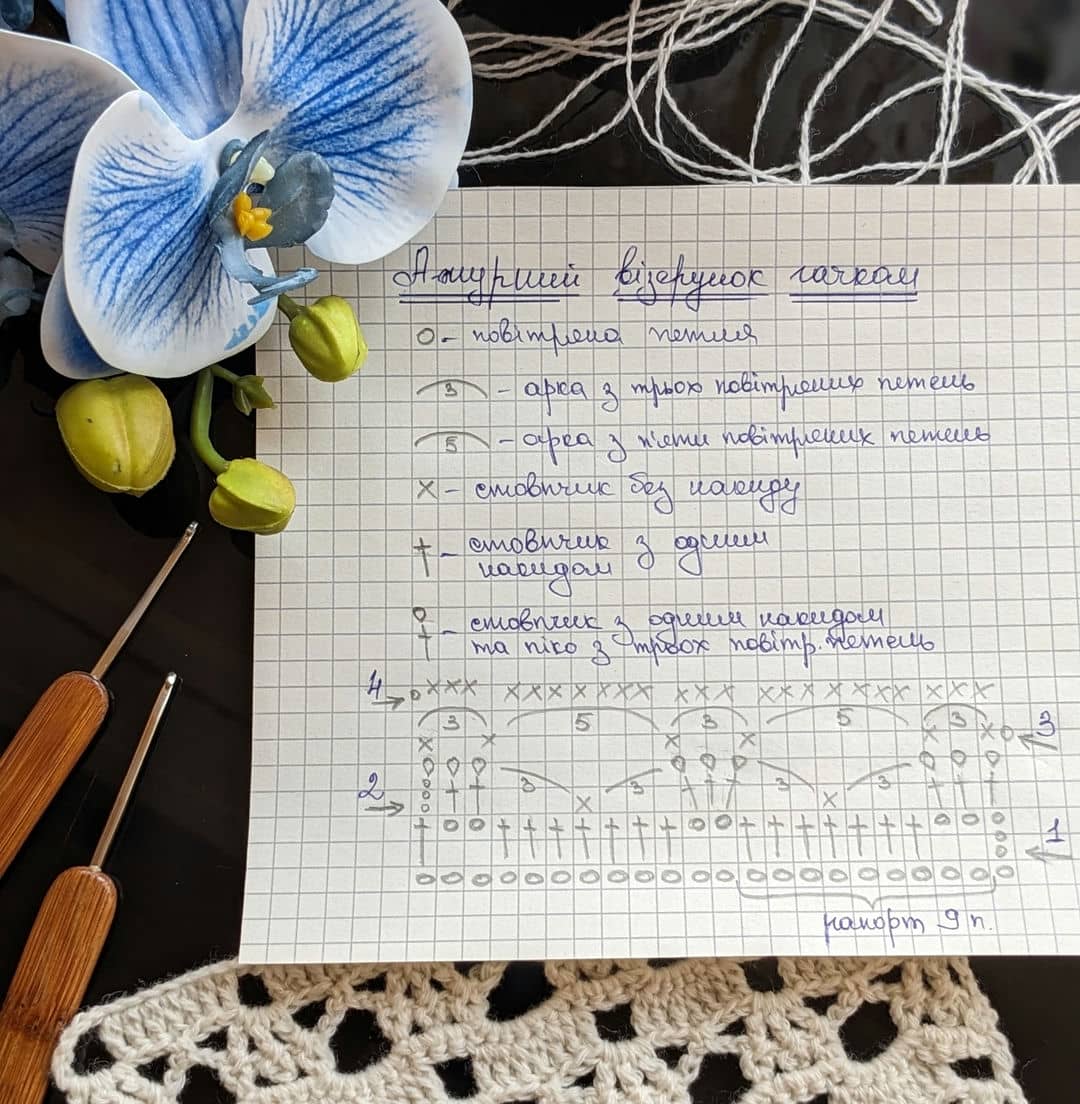 Ажурний візерунок гачком
о - повітряна петля
3 - арка з трьох повітряних петель
5 - арка з п'яти повітряних петель
х - стовпчик без накиду
† - стовпчик з одним
накидом
стовпчик з одним накидом
та піко з трьох повітр. петель
4 → 
3 5 3 5 3
3
2 → 3 3 3 3
1
рапорт 9 п.